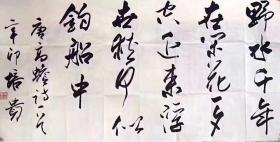 野水千年
在闲花一夕
空近来浮
世狭何似
钓船中
唐高蟾诗一首
辛卯 培贵